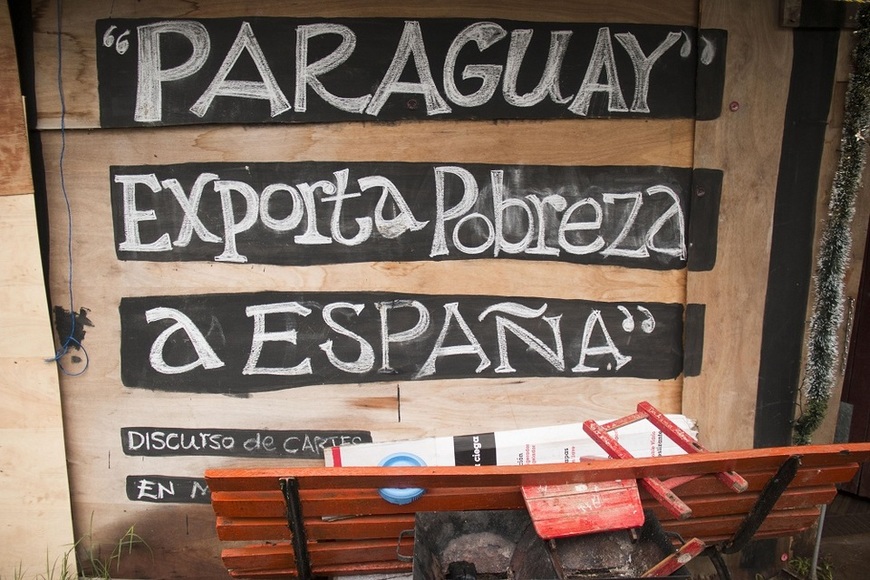 “PARAGUAY”
Exporta Pobreza
a ESPAÑA.”
DISCURSO de CARTES
EN
ciega